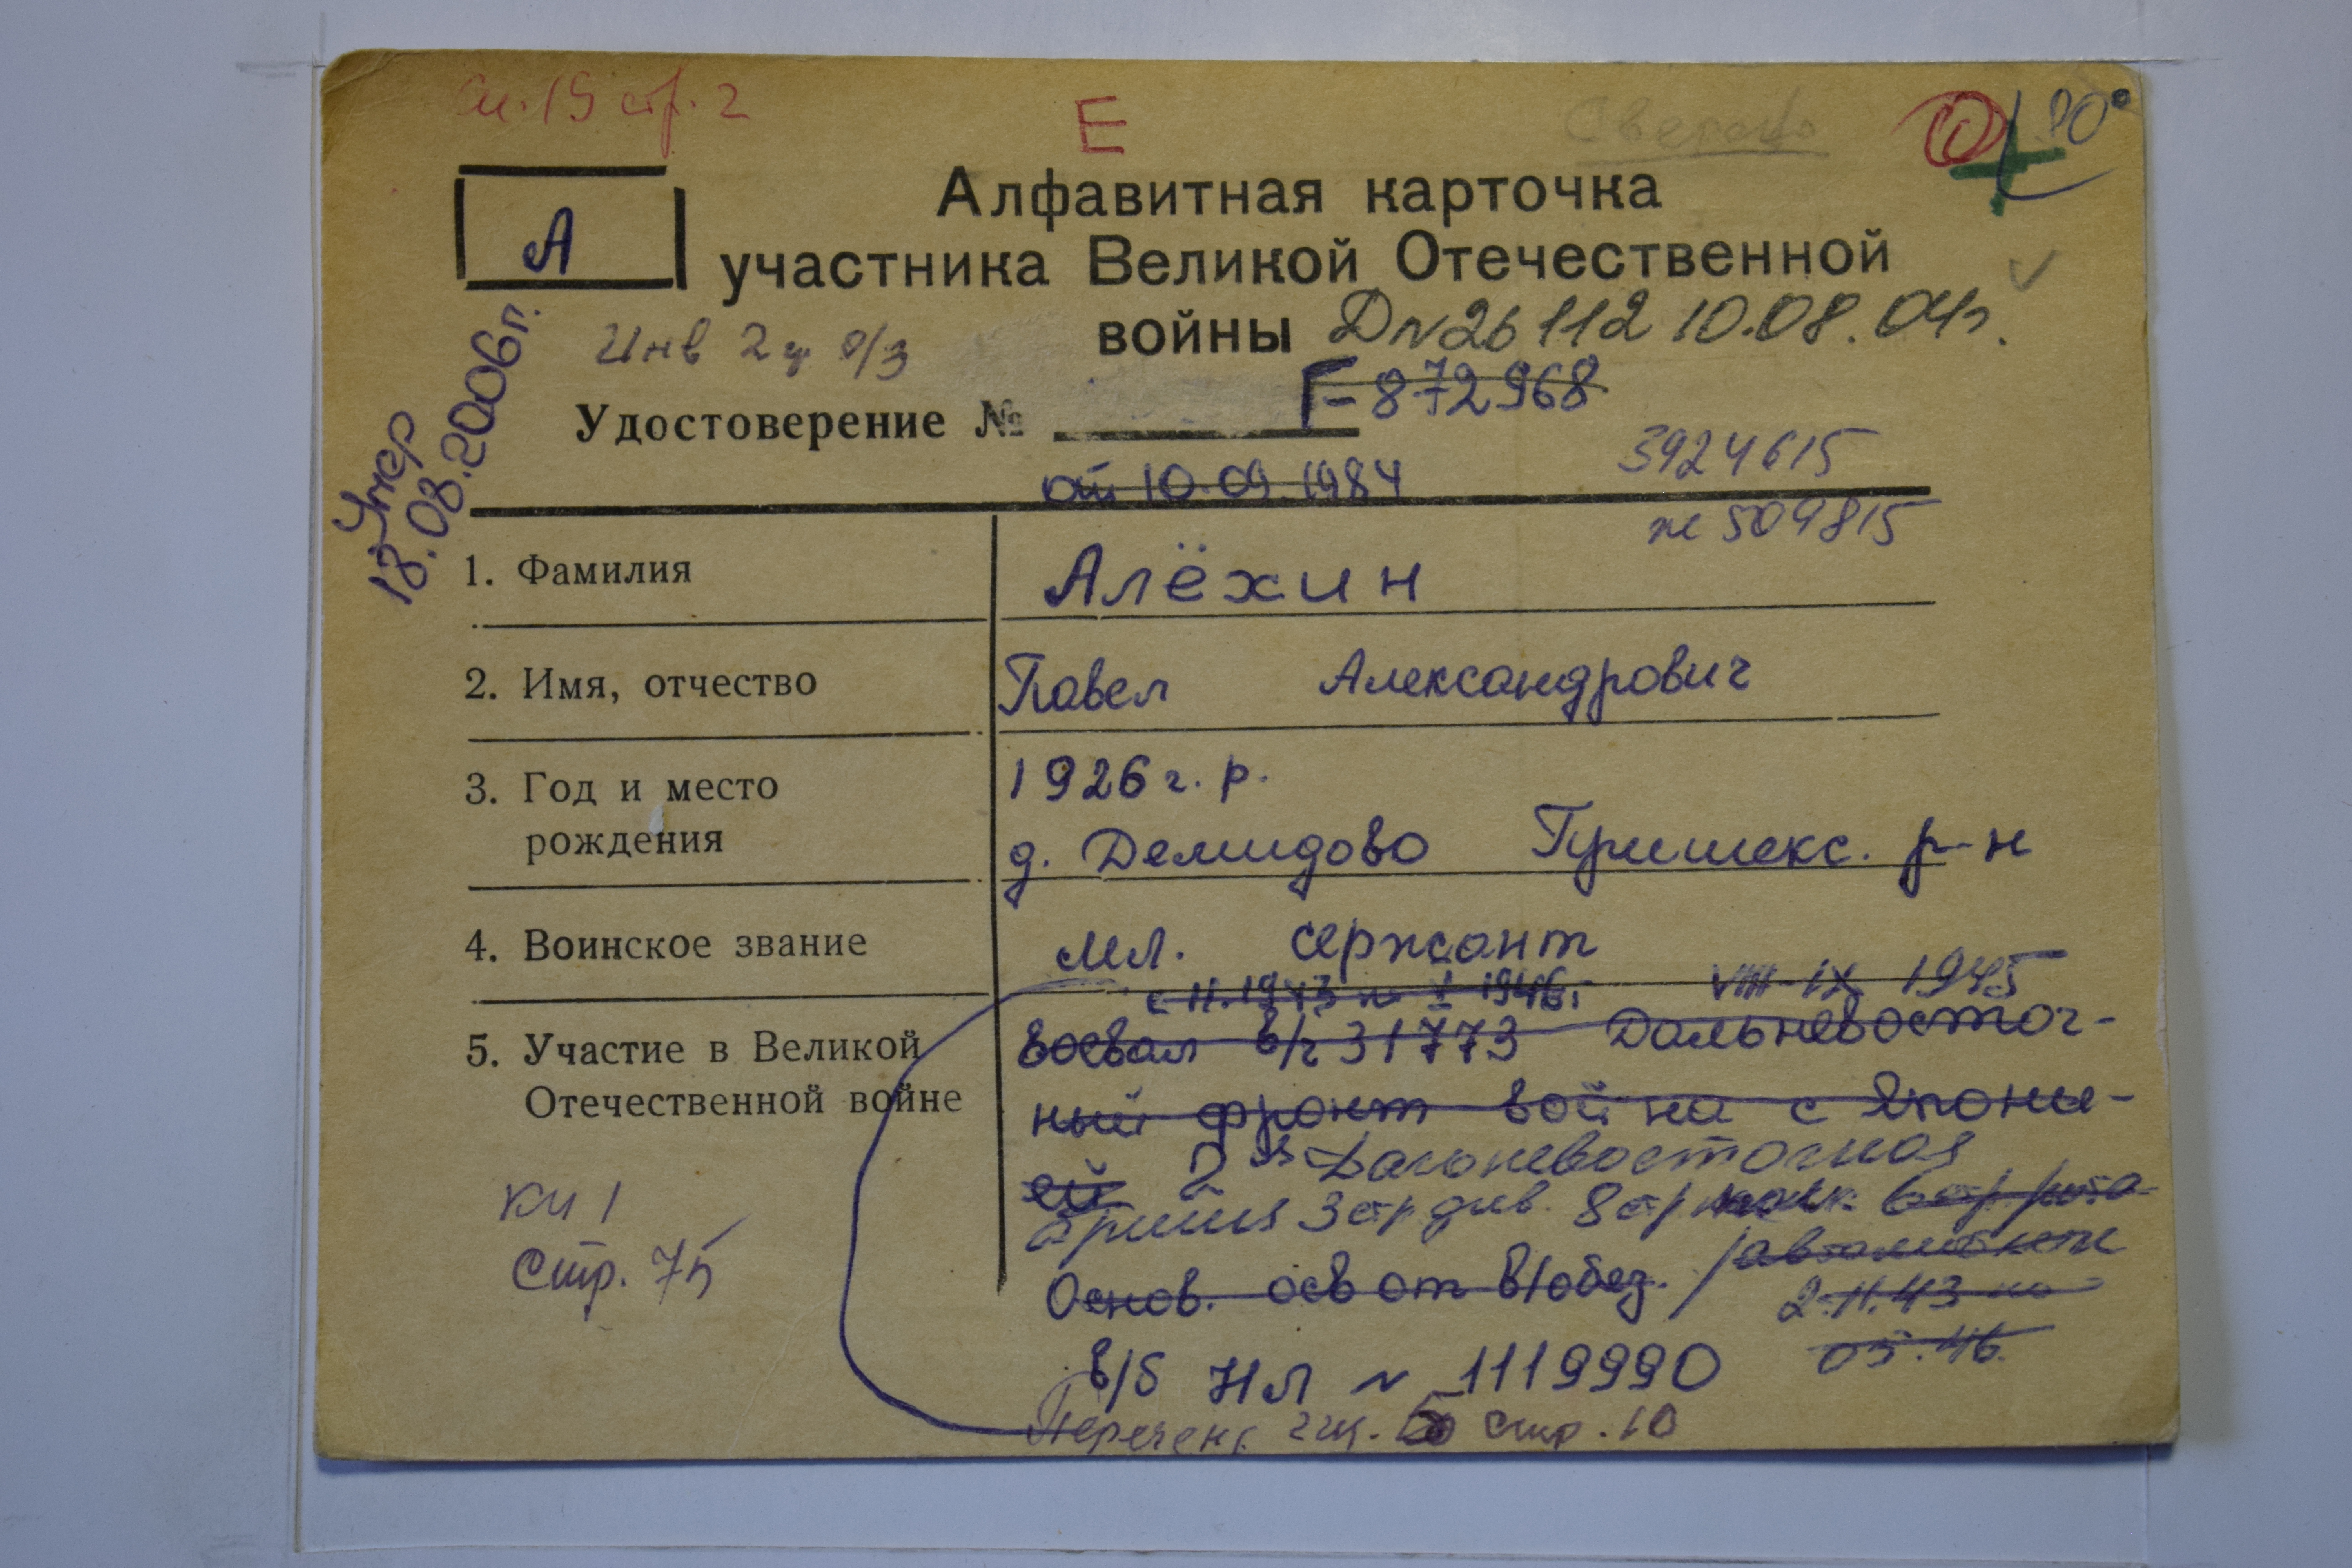 сп. 19 стр. 2
Е
Сверено
А
Алфавитная карточка
участника Великой Отечественной
войны
D № 26112 10.08.04г.
Инв 2 гр о/з
Умер
18.08.2006г.
Удостоверение № Г-872968
от 10.09.1984
3924615
же 509815
1. Фамилия
Алёхин
2. Имя, отчество
Павел Александрович
3. Год и место
рождения
1926 г. р.
д. Демидово р-н
4. Воинское звание
мл. сержант
5. Участие в Великой
Отечественной войне
с 11.1943 по 1946г
VIII-IX 1945
воевал в/ч 31773 Дальневосточ-
ный фронт война с Япони-
ей 2ая Дальневосточная
армия 3 стр. див. 8 стр полк 6 стр рота
автоматчик
Основ. осв от в/обяз.
2.11.43 по
05.46.
в/б НЛ № 1119990
Перечень стр. 10
кн 1
Стр. 75